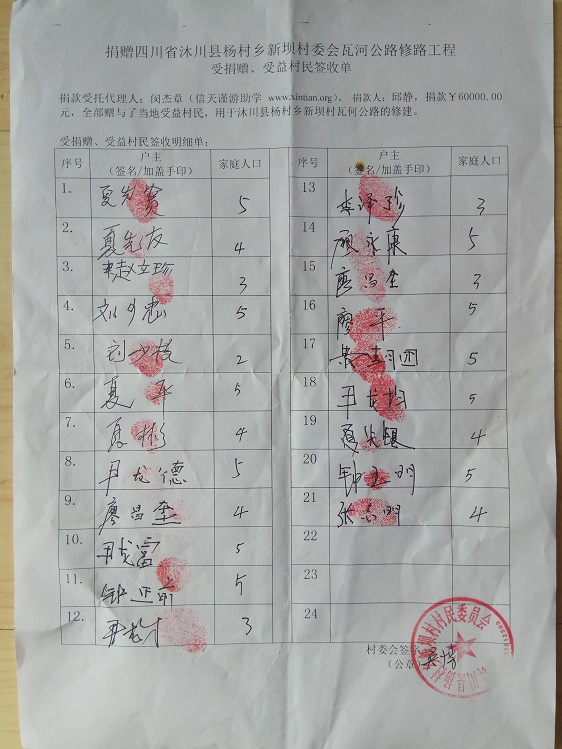 捐赠四川省沐川县杨村乡新坝村委会瓦河公路修路工程
受捐赠、受益村民签收单
捐款受托代理人：闵杰章（信天谨游助学 www.xintian.org），捐款人：邱静，捐款￥60000.00
元，全部赠与了当地受益村民，用于沐川县杨村乡新坝村瓦何公路的修建。
受捐赠、受益村民签收明细单：
序号 户主（签名/加盖手印） 家庭人口 序号 户主（签名/加盖手印） 家庭人口
1. 夏先 5 13 李泽珍 3
2. 夏先友 4 14 顾永康 5
3. 赵文珍 3 15 廖昌奎 3
4. 刘 5 16 廖平 5
5. 刘少枝 2 17 5
6. 夏平 5 18 尹龙均 5
7. 夏彬 4 19 夏 4
8. 尹龙德 5 20 钟玉明 5
9. 廖昌奎 4 21 张 明 4
10. 尹龙富 5 22
11. 钟正 5 23
12. 尹 3 24
村委会签字
（公章）
新坝村村民委员会